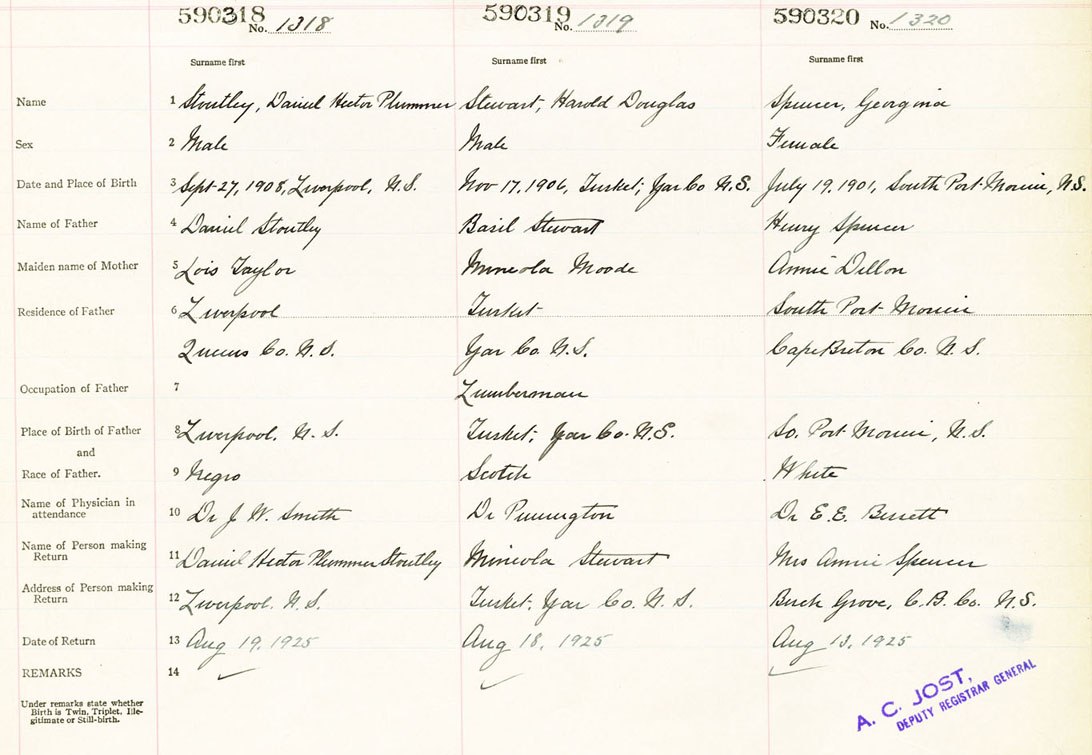 590318 590319 590320
No. 1318 No. 1319 No. 1320
Surname first Surname first Surname first
Name 1 Stoutley, Daniel Hector Plummer Stewart, Harold Douglas Spencer, Georgina
Sex 2 Male Male Female
Date and Place of Birth 3 Sept 27, 1908, Liverpool, N.S. Nov 17, 1906, Tusket, Yar Co N.S. July 19, 1901, South Port Morien, N.S.
Name of Father 4 Daniel Stoutley Basil Stewart Henry Spencer
Maiden name of Mother 5 Lois Taylor Mineola Moode Annie Dillon
Residence of Father 6 Liverpool Tusket South Port Morien
Queens Co. N.S. Yar Co. N.S. Cape Breton Co. N.S.
Occupation of Father 7 Lumberman
Place of Birth of Father 8 Liverpool. N.S. Tusket, Yar Co. N.S. So. Port Morien, N.S.
and
Race of Father. 9 Negro Scotch White
Name of Physician in
attendance 10 Dr J. W. Smith Dr E.E. Bissett
Name of Person making
Return 11 Daniel Hector Plummer Stoutley Mineola Stewart Mrs Annie Spencer
Address of Person making
Return 12 Liverpool. N.S. Tusket, Yar Co. N.S. Birch Grove, C.B. Co. N.S.
Date of Return 13 Aug 19, 1925 Aug 18, 1925 Aug 13, 1925
REMARKS 14
Under remarks state whether
Birth is Twin, Triplet, Ille-
gitimate or Still-birth.
A. C. JOST,
DEPUTY REGISTRAR GENERAL